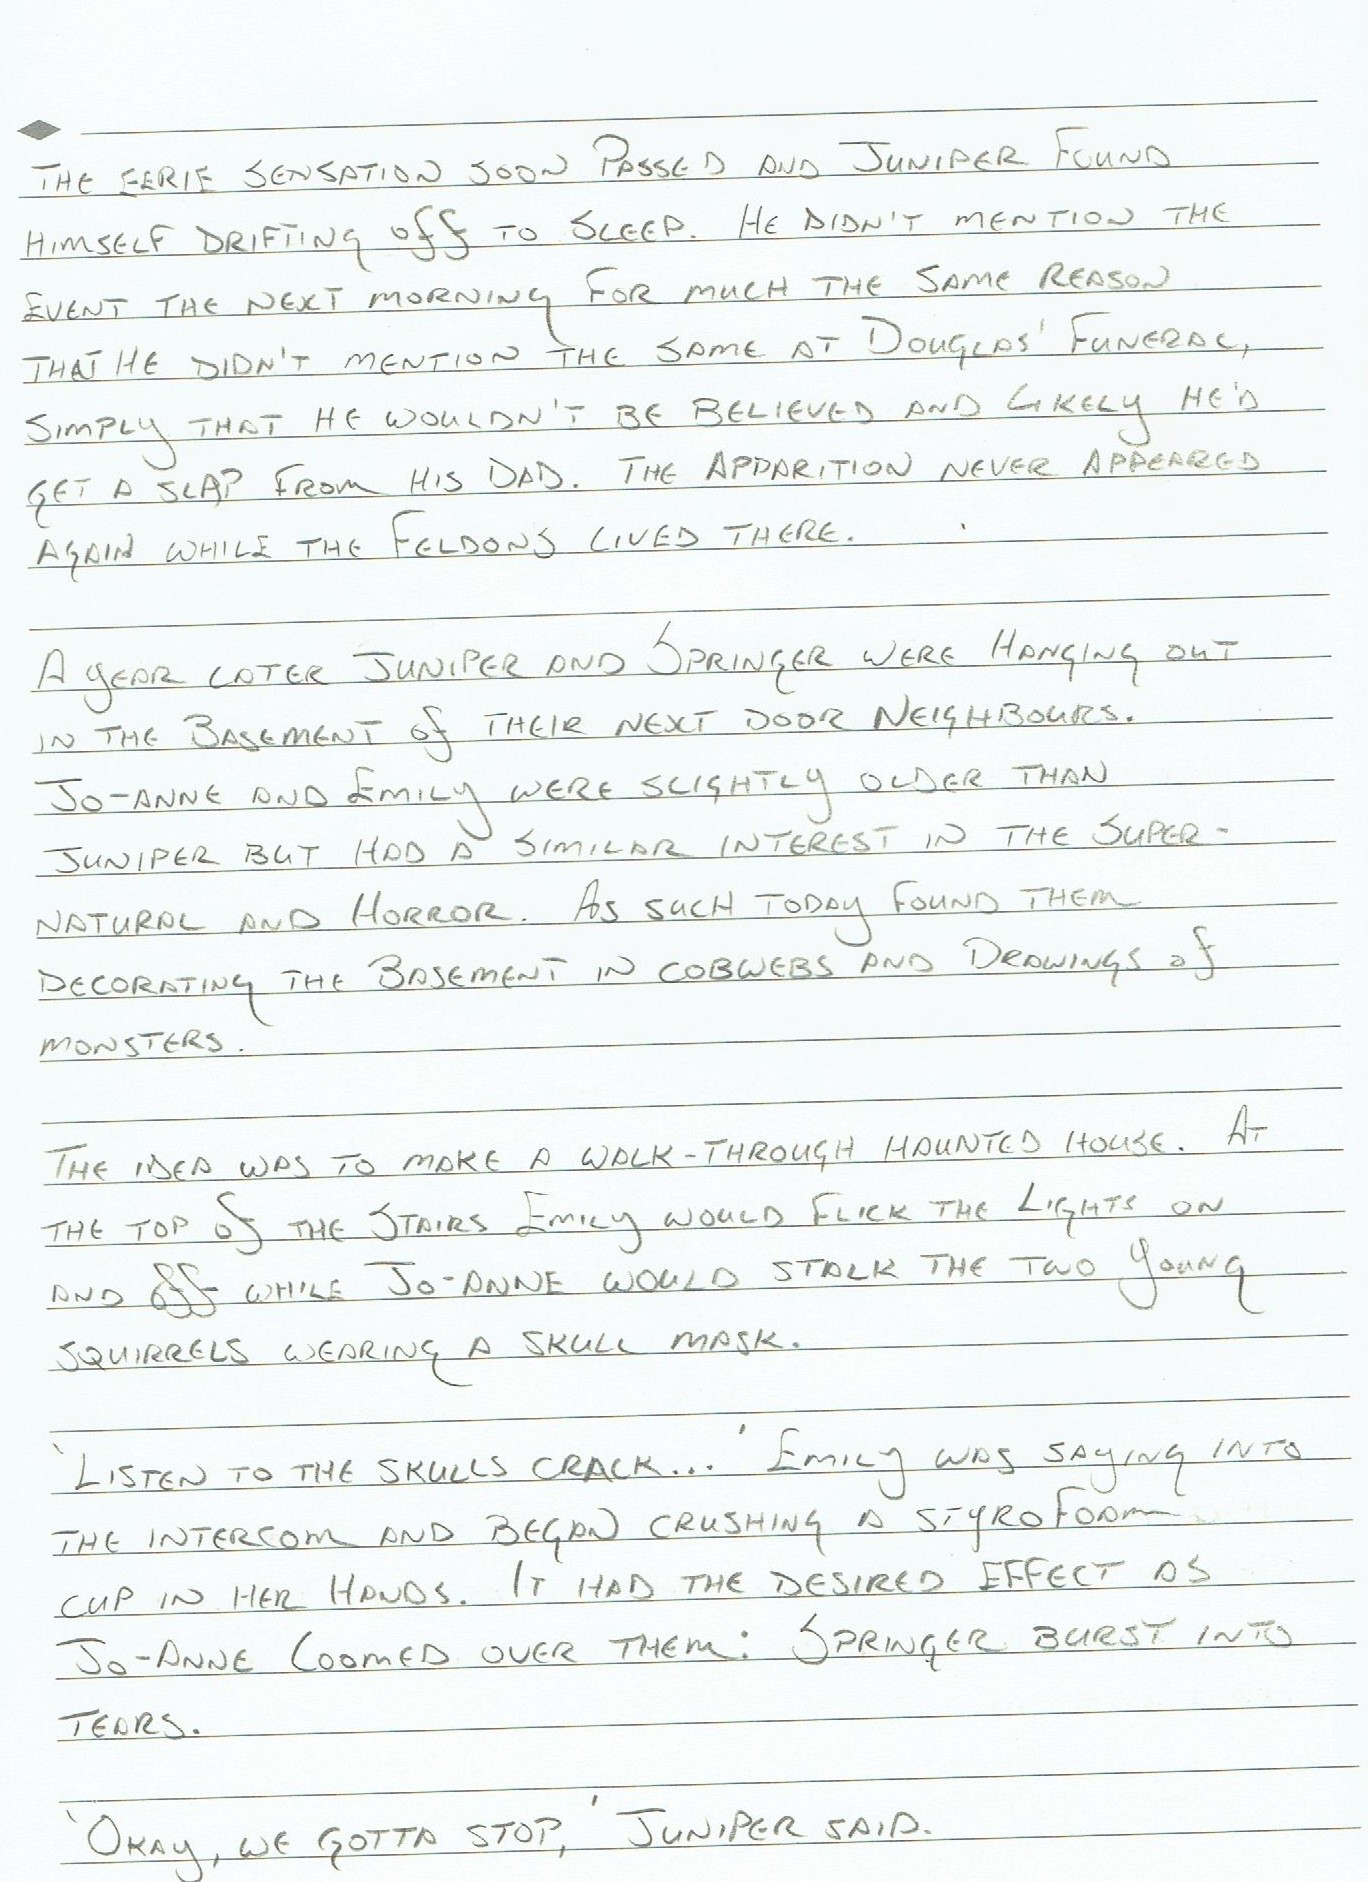 THE EERIE SENSATION SOON PASSED AND JUNIPER FOUND
HIMSELF DRIFTING OFF TO SLEEP. HE DIDN'T MENTION THE
EVENT THE NEXT MORNING FOR MUCH THE SAME REASON
THAT HE DIDN'T MENTION THE SAME AT DOUGLAS' FUNERAL,
SIMPLY THAT HE WOULDN'T BE BELIEVED AND LIKELY HE'D
GET A SLAP FROM HIS DAD. THE APPARITION NEVER APPEARED
AGAIN WHILE THE FELDONS LIVED THERE.
A YEAR LATER JUNIPER AND SPRINGER WERE HANGING OUT
IN THE BASEMENT OF THEIR NEXT DOOR NEIGHBOURS.
JO-ANNE AND EMILY WERE SLIGHTLY OLDER THAN
JUNIPER BUT HAD A SIMILAR INTEREST IN THE SUPER-
NATURAL AND HORROR. AS SUCH TODAY FOUND THEM
DECORATING THE BASEMENT IN COBWEBS AND DRAWINGS OF
MONSTERS.
THE IDEA WAS TO MAKE A WALK-THROUGH HAUNTED HOUSE. AT
THE TOP OF THE STAIRS EMILY WOULD FLICK THE LIGHTS ON
AND OFF WHILE JO-ANNE WOULD STALK THE TWO YOUNG
SQUIRRELS WEARING A SKULL MASK.
'LISTEN TO THE SKULLS CRACK...' EMILY WAS SAYING INTO
THE INTERCOM AND BEGAN CRUSHING A STYROFOAM
CUP IN HER HANDS. IT HAD THE DESIRED EFFECT AS
JO-ANNE LOOMED OVER THEM: SPRINGER BURST INTO
TEARS.
'OKAY, WE GOTTA STOP,' JUNIPER SAID.